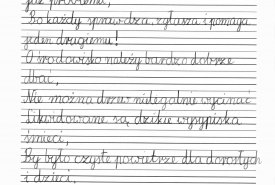 już problemu,
Bo każdy sprawdza, zgłasza i pomaga
jeden drugiemu!
O środowisko należy bardzo dobrze
dbać,
Nie można drzew nielegalnie wycinać
Likwidowane są dzikie wysypiska
śmieci,
By było czyste powietrze dla dorosłych
i dzieci.